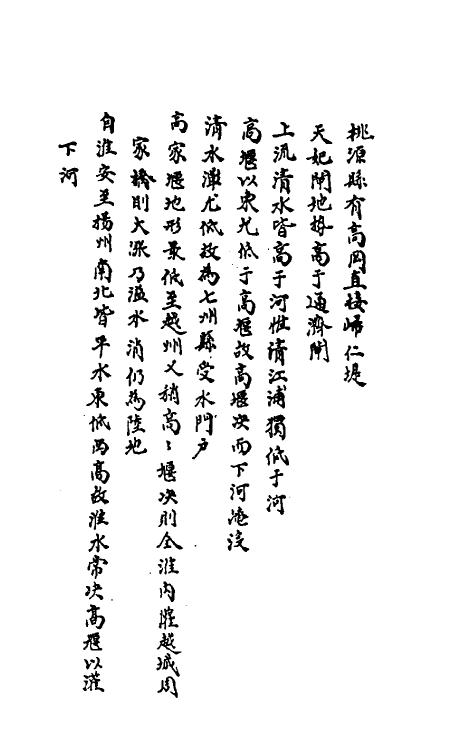 桃源縣有高岡直接歸仁堤
天妃閘地形高于通濟閘
上流清水皆高于河惟清江浦獨低于河
高堰以東尤低于高堰故高堰决而下河淹没
清水潭尤低故為七州縣受水門户
高家堰地形最低至越州又稍高〻堰决則全淮内灌越城周
家橋則大漲乃溢水消仍為陸地
自淮安至揚州南北皆平水東低西高故淮水常决高堰以灌
下河